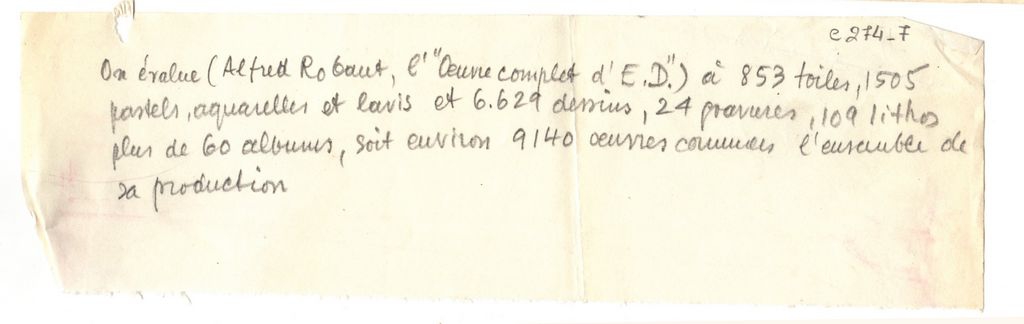 c 274-7
On évalue (Alfred Robaut, l'"Œuvre complet d'E.D.") à 853 toiles, 1505
pastels, aquarelles et lavis et 6.629 dessins, 24 gravures, 109 lithos
plus de 60 albums, soit environ 9140 œuvres connues l'ensemble de
sa production